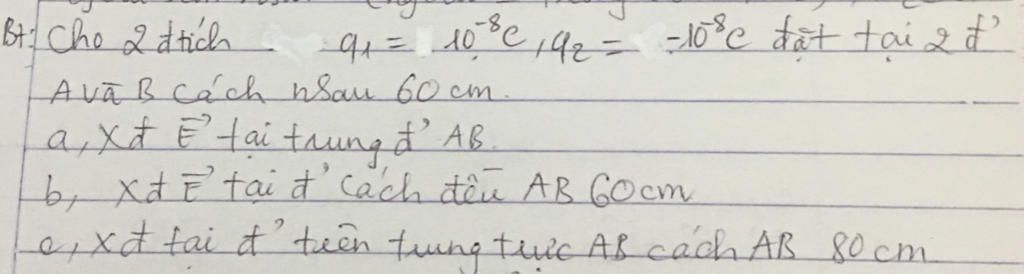 Bt: Cho 2 đtích q1 = 10⁻⁸C, q2 = -10⁻⁸C đặt tại 2 đ'
A và B cách nhau 60 cm.
a, Xđ E⃗ tại trung đ' AB.
b, Xđ E⃗ tại đ' cách đều AB 60cm
c, Xđ tại đ' trên trung trực AB cách AB 80 cm.